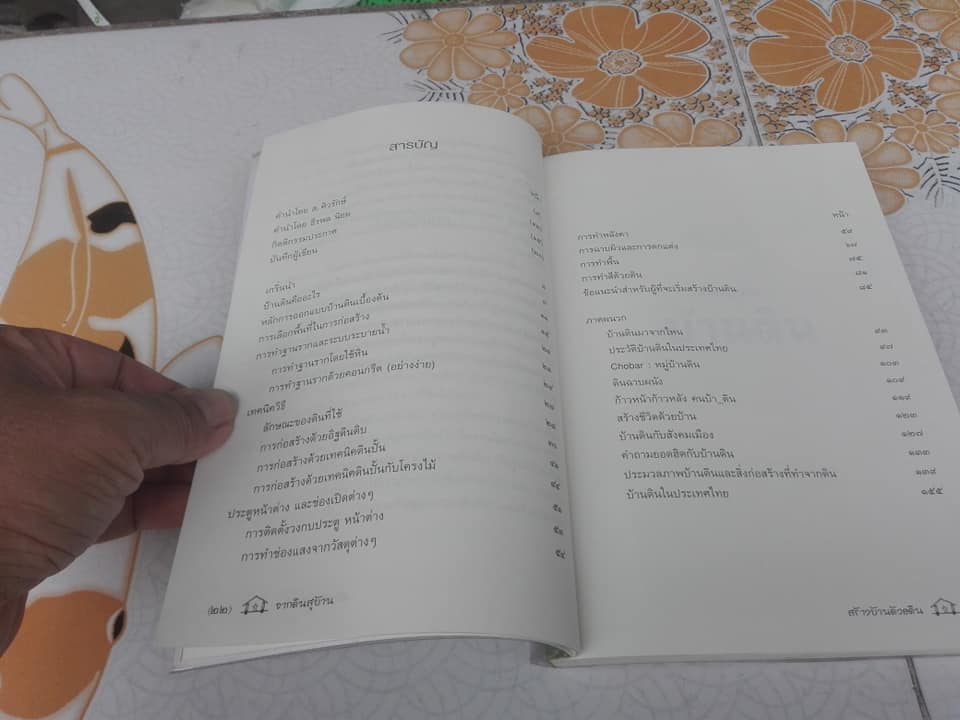 สารบัญ
หน้า
คำนำโดย ส.ศิวรักษ์
คำนำโดย ธีรพล นิยม
กิตติกรรมประกาศ
บันทึกผู้เขียน
เกริ่นนำ
บ้านดินคืออะไร
หลักการออกแบบบ้านดินเบื้องต้น
การเลือกพื้นที่ในการก่อสร้าง
การทำฐานรากและระบบระบายน้ำ
การทำฐานรากโดยใช้หิน
การทำฐานรากด้วยคอนกรีต (อย่างง่าย)
เทคนิควิธี
ลักษณะของดินที่ใช้
การก่อสร้างด้วยอิฐดินดิบ
การก่อสร้างด้วยเทคนิคดินปั้น
การก่อสร้างด้วยเทคนิคดินปั้นกับโครงไม้
ประตูหน้าต่าง และช่องเปิดต่างๆ ๕๑
การติดตั้งวงกบประตู หน้าต่าง
การทำช่องแสงจากวัสดุต่างๆ ๕๔
(๒๒) จากดินสู่บ้าน
หน้า
การทำหลังคา
การฉาบผิวและการตกแต่ง ๖๗
การทำพื้น ๗๕
การทำสีด้วยดิน ๘๑
ข้อแนะนำสำหรับผู้ที่จะเริ่มสร้างบ้านดิน ๘๔
ภาคผนวก
บ้านดินมาจากไหน ๙๓
ประวัติบ้านดินในประเทศไทย ๙๗
Chobar : หมู่บ้านดิน ๑๐๓
ดินฉาบผนัง ๑๐๙
ก้าวหน้าก้าวหลัง คนบ้า_ดิน ๑๑๙
สร้างชีวิตด้วยบ้าน ๑๒๓
บ้านดินกับสังคมเมือง ๑๒๗
คำถามยอดฮิตกับบ้านดิน ๑๓๓
ประมวลภาพบ้านดินและสิ่งก่อสร้างที่ทำจากดิน ๑๓๙
บ้านดินในประเทศไทย ๑๕๕
สร้างบ้านด้วยดิน